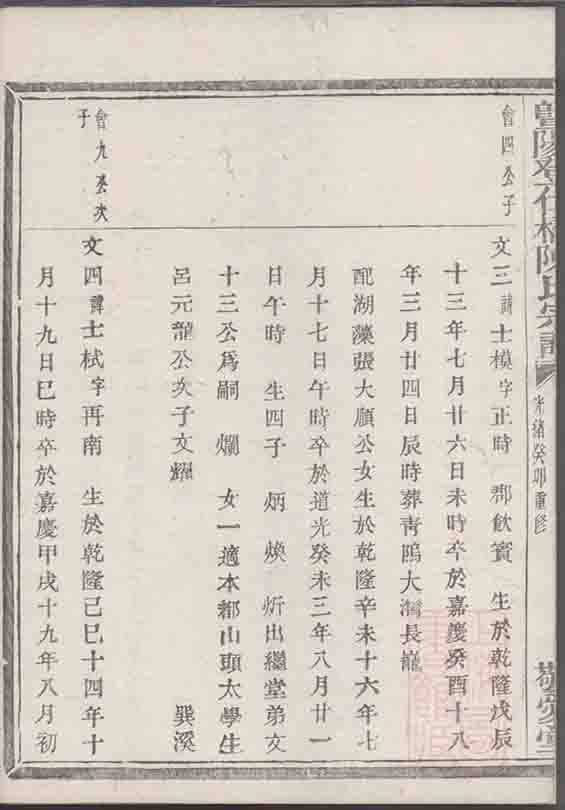 光緒癸卯重修
敬愛堂
會四公子
文三諱士模字正時 鄉飲賓 生於乾隆戊辰
十三年七月廿六日未時卒於嘉慶癸酉十八
年三月廿四日辰時葬靑鴟大灣長巃
配湖藻張大願公女生於乾隆辛未十六年七
月十七日午時卒於道光癸未三年八月廿一
日午時 生四子 炳 煥 炘出繼堂弟文
十三公爲嗣 爛 女一適本都山頭太學生
呂元龍公次子文耀 巽溪
會九公次
子
文四諱士栻字再南 生於乾隆己巳十四年十
月十九日巳時卒於嘉慶甲戌十九年八月初